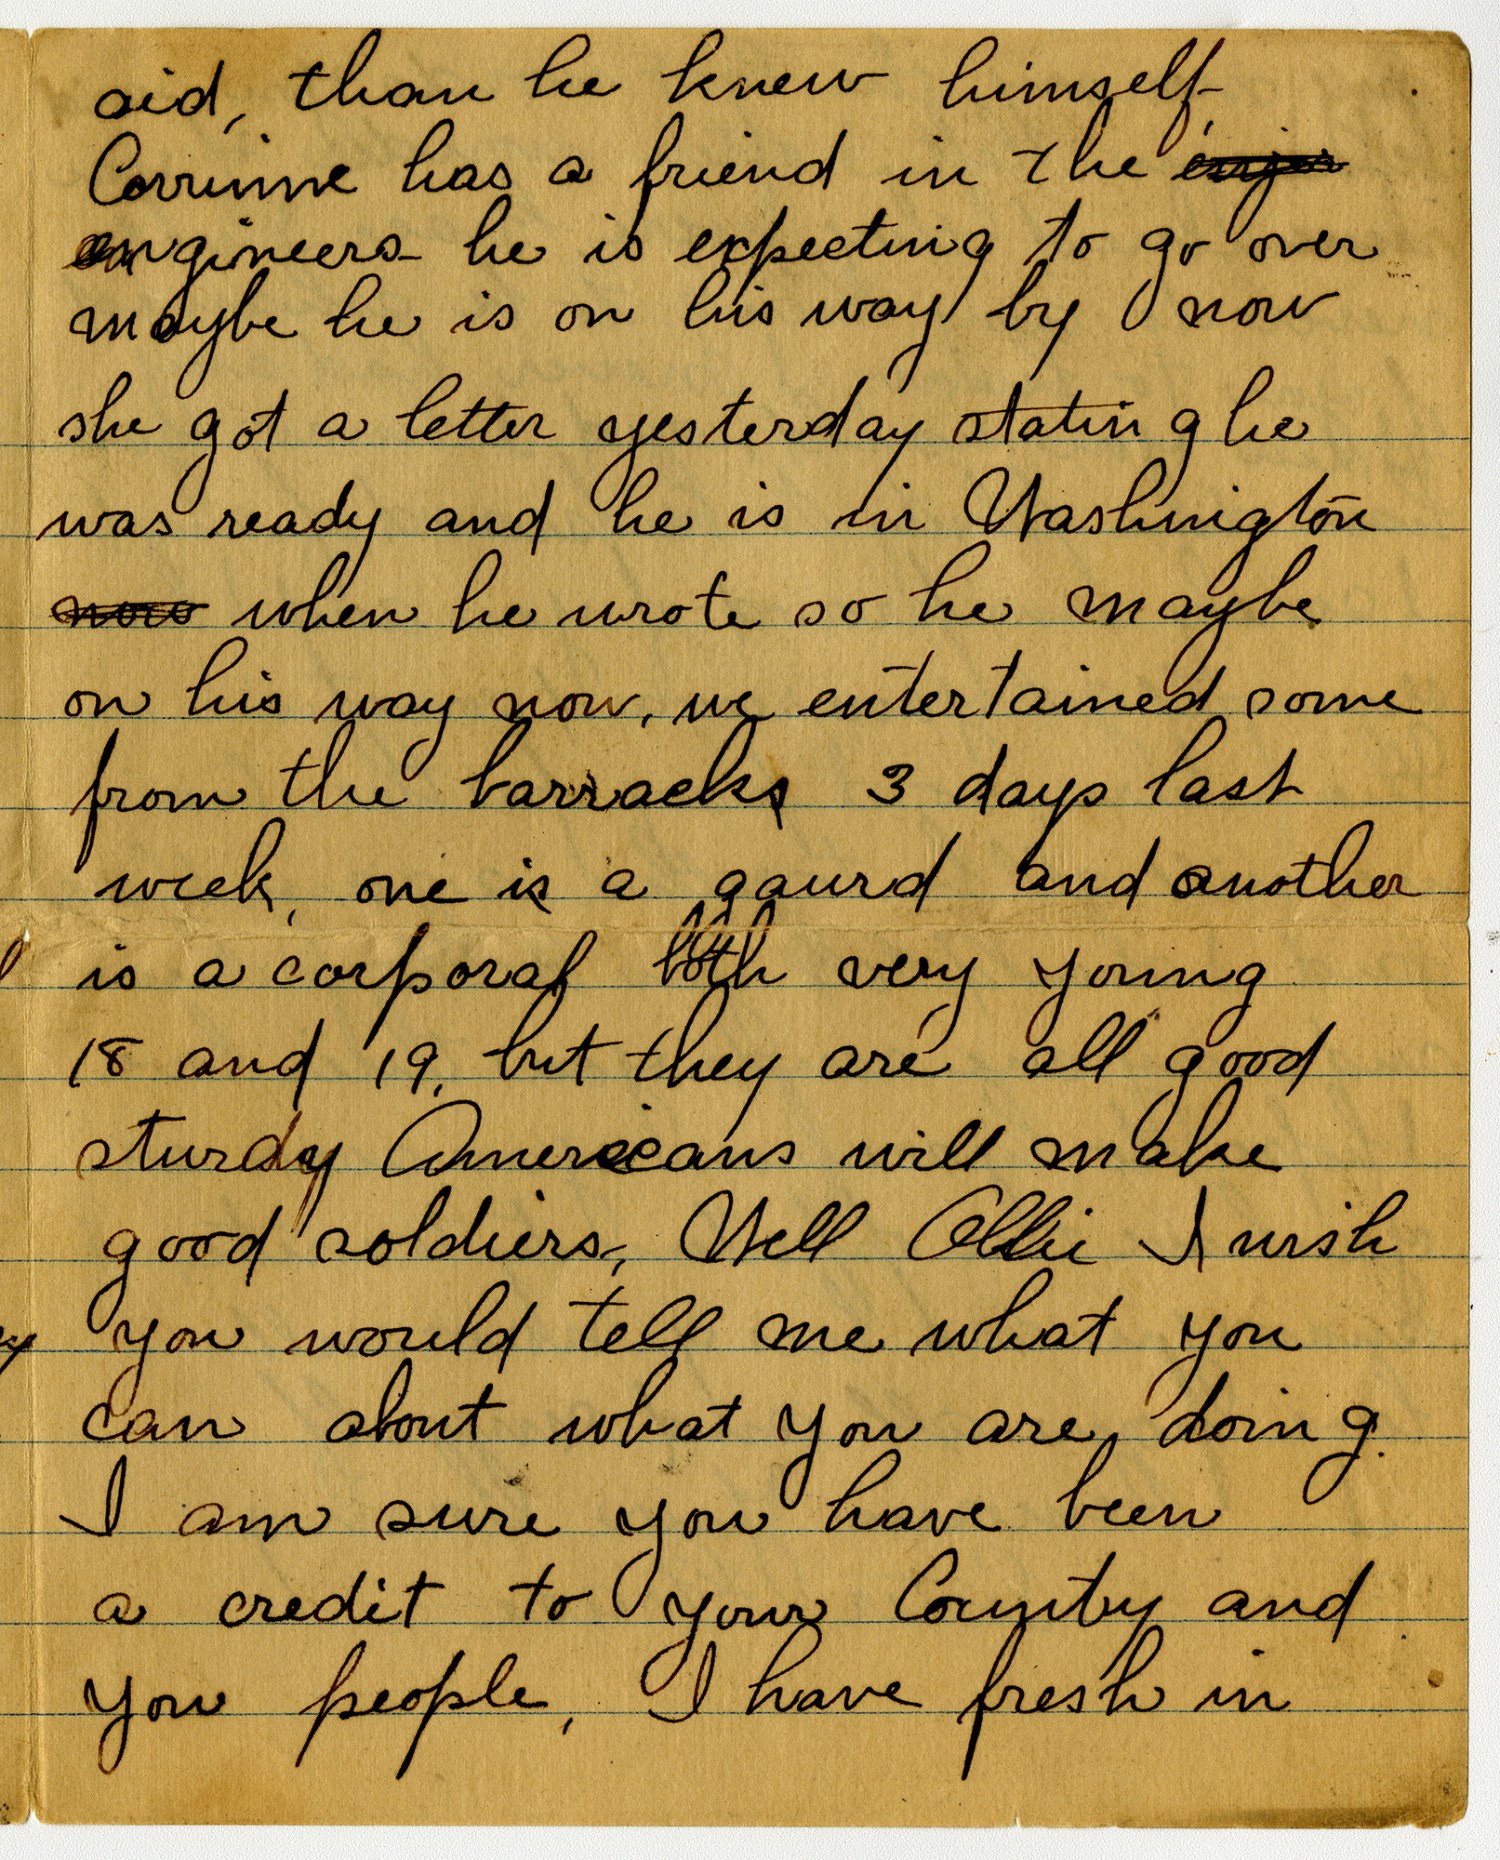 aid, than he knew himself.
Corrinne has a friend in the
engineers he is expecting to go over
maybe he is on his way by now
she got a letter yesterday stating he
was ready and he is in Washington
now when he wrote so he maybe
on his way now, we entertained some
from the barracks 3 days last
week, one is a gaurd and another
is a corporal both very young
18 and 19, but they are all good
sturdy Americans will make
good soldiers, Well Ollie I wish
you would tell me what you
can about what you are doing.
I am sure you have been
a credit to your Country and
you people, I have fresh in